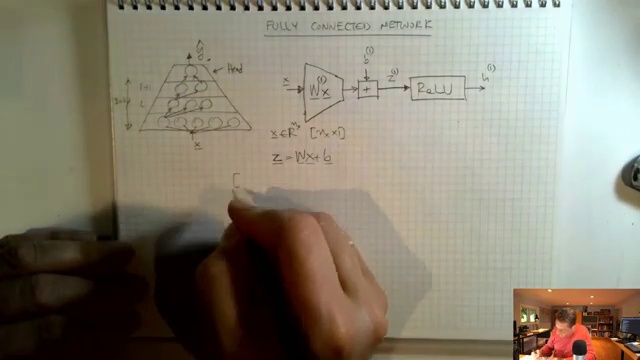 FULLY CONNECTED NETWORK
ŷ
Head
L+1
L
x
x
Wx
b⁽¹⁾
+
z⁽¹⁾
ReLU
h⁽¹⁾
x ∈ R [ x1]
z = Wx + b
[